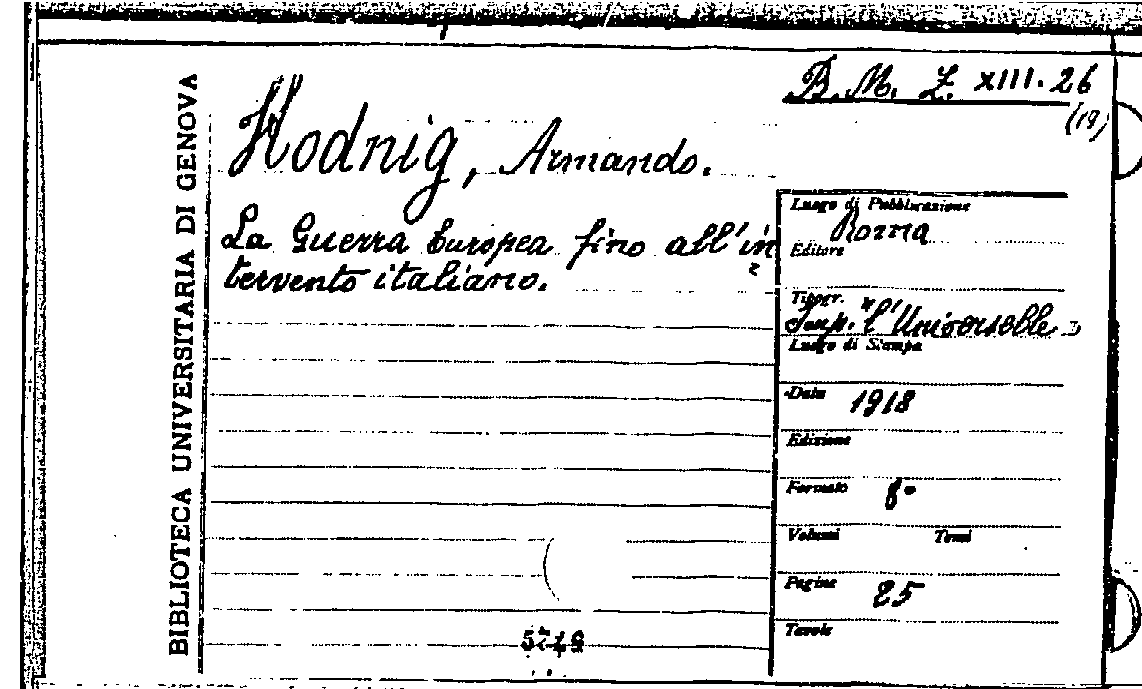 B. M. Z. XIII. 26
(19)
BIBLIOTECA UNIVERSITARIA DI GENOVA
Hodnig, Armando.
La Guerra Europea fino all'in
tervento italiano.
Luogo di Pubblicazione
Roma
Editore
Tipogr.
Imp. "l'Universelle"
Luogo di Stampa
Data 1918
Edizione
Formato 8°
Volumi Tomi
Pagine 25
Tavole